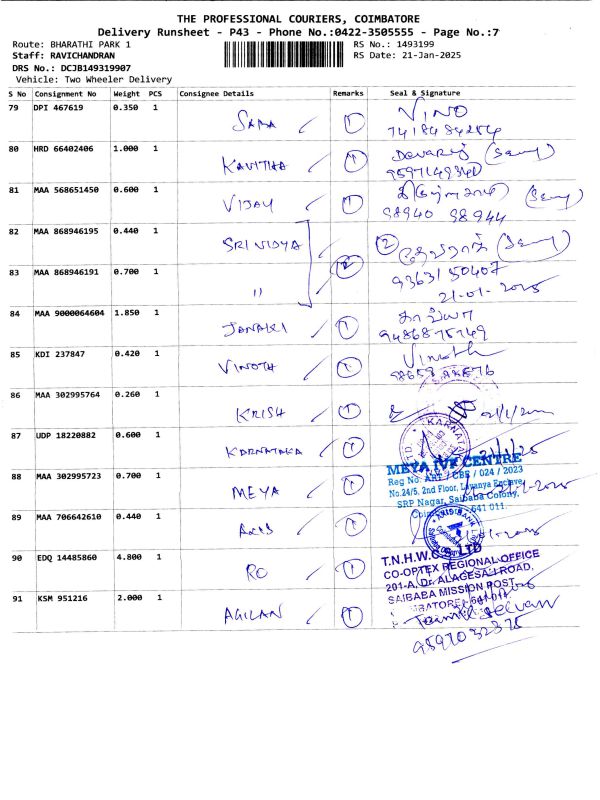 THE PROFESSIONAL COURIERS, COIMBATORE
Delivery Runsheet - P43 - Phone No.:0422-3505555 - Page No.:7
Route: BHARATHI PARK 1
RS No.: 1493199
Staff: RAVICHANDRAN
RS Date: 21-Jan-2025
DRS No.: DCJB149319907
Vehicle: Two Wheeler Delivery
S No Consignment No Weight PCS Consignee Details Remarks Seal & Signature
79 DPI 467619 0.350 1 SARA 1 VINO
7418484254
80 HRD 66402406 1.000 1 KAVITHA 1 Devaraj
9597149340
81 MAA 568651450 0.600 1 VIJAY 1
98940 98944
82 MAA 868946195 0.440 1 SRI VIDYA 2
83 MAA 868946191 0.700 1 " 2 93631 50407
21-01-2025
84 MAA 9000064604 1.850 1 JANAKI 1
9486875749
85 KDI 237847 0.420 1 VINOTH 1 Vinoth
86 MAA 302995764 0.260 1 KRISH 1
87 UDP 18220882 0.600 1 KARNATAKA 1
KARNATAK
88 MAA 302995723 0.700 1 MEYA 1
MEYA IVF CENTRE
Reg No. ART / CBE / 024 / 2023
No.24/5, 2nd Floor, Enclave,
SRP Nagar, Saibaba Colony,
641 011.
89 MAA 706642610 0.440 1 AXIS 1
AXIS BANK
90 EDQ 14485860 4.800 1 RO 1
T.N.H.W.C. LTD
CO-OPTEX REGIONAL OFFICE
201-A, Dr. ALAGESAN ROAD,
SAIBABA MISSION POST
91 KSM 951216 2.000 1 AGILAN 1
Selvan
9597032375